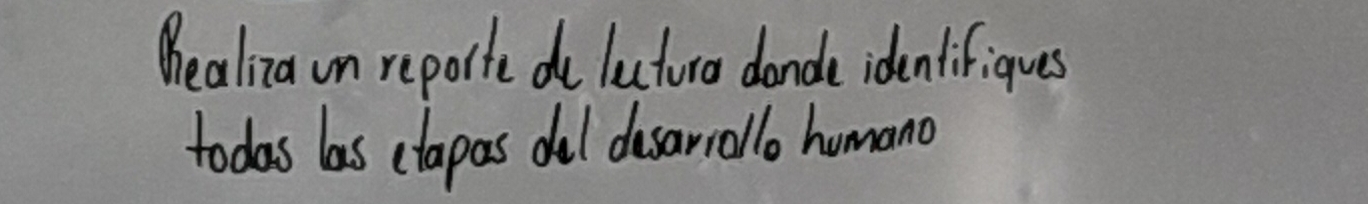 Realiza un reporte de lectura donde identifiques
todas las etapas del desarrollo humano